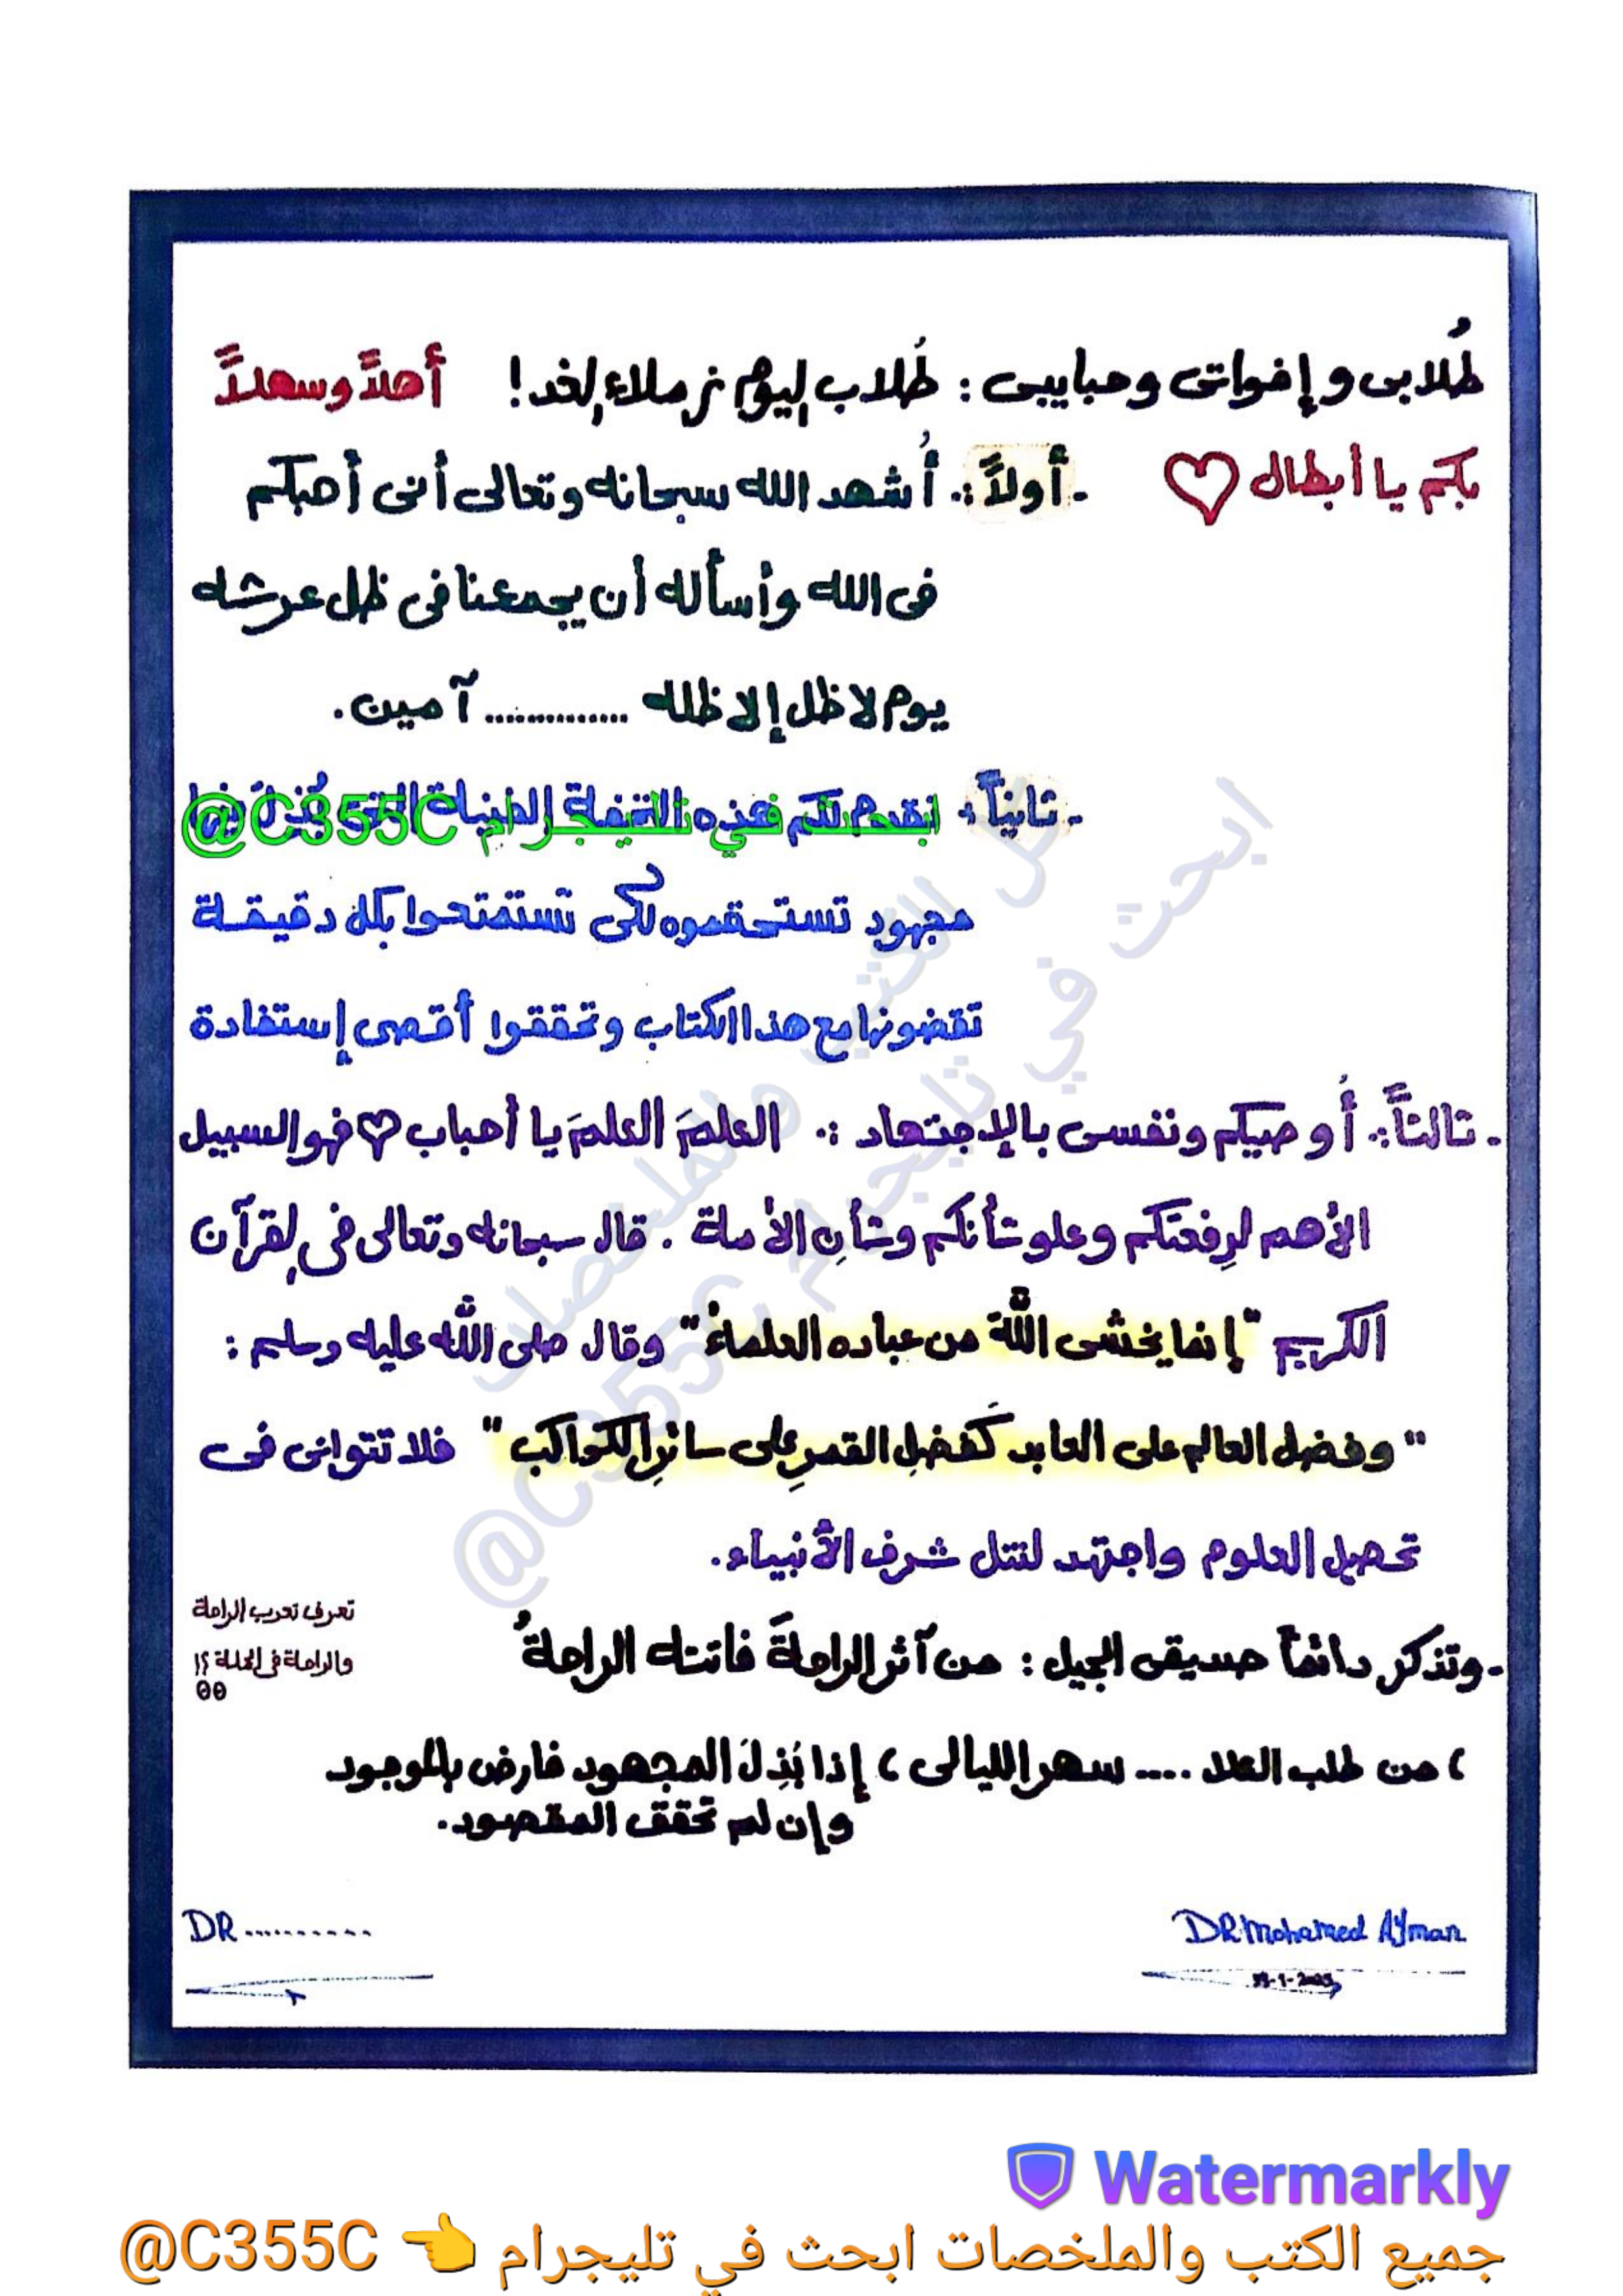 طُلابى وإخواتى وحبايبى : طُلاب اليوم زملاء الغد ! أهلاً وسهلاً
بكم يا أبطال ♡ - أولاً :. أُشهد الله سبحانه وتعالى أنى أحبكم
فى الله وأسأله أن يجمعنا فى ظل عرشه
يوم لا ظل إلا ظله .............. آمين.
- ثانياً : لكم هذه التى
@C355C
مجهود تستحقموه لكى تستمتعوا بكل دقيقة
تقضونها مع هذا الكتاب وتحققوا أقصى إستفادة
- ثالثاً :. أُوصيكم ونفسى بالإجتهاد :. العلمَ العلمَ يا أحباب ♡ فهو السبيل
الأهم لرِفعتكم وعلو شأنكم وشأنِ الأمة . قال سبحانه وتعالى فى القرآن
الكريم "إنما يخشى اللهَ من عباده العلماءُ" وقال صلى الله عليه وسلم :
"وفضل العالم على العابد كَفضلِ القمرِ على سائرِ الكواكب" فلا تتوانى فى
تحصيل العلوم واجتهد لتنل شرف الأنبياء.
تعرف تعرب الراحة
والراحة فى الجملة ؟!
- وتذكر دائماً صديقى الجميل : من آثر الراحةَ فاتته الراحةُ
، من طلب العلا .... سهر الليالى ، إذا بُذِلَ المجهود فارض بالموجود
وإن لم تحقق المقصود.
DR..........
DR.Mohamed Ayman
كل الكتب والملخصات
ابحث في تليجرام
@C355C
Watermarkly
جميع الكتب والملخصات ابحث في تليجرام 👈 @C355C